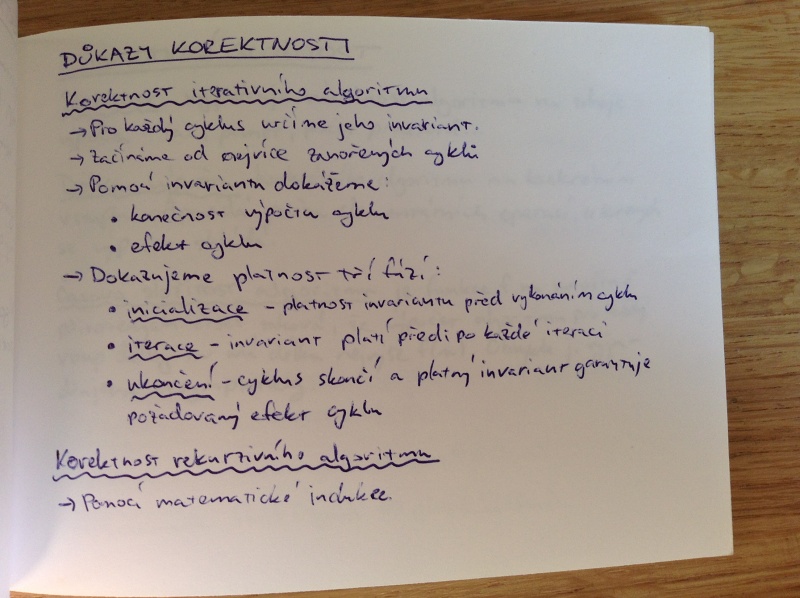 DŮKAZY KOREKTNOSTI
Korektnost iterativního algoritmu
→ Pro každý cyklus určíme jeho invariant.
→ Začínáme od nejvíce zanořených cyklů
→ Pomocí invariantu dokážeme:
• konečnost výpočtu cyklu
• efekt cyklu
→ Dokazujeme platnost tří fází:
• inicializace – platnost invariantu před vykonáním cyklu
• iterace – invariant platí před i po každé iteraci
• ukončení – cyklus skončí a platný invariant garantuje
požadovaný efekt cyklu
Korektnost rekurzivního algoritmu
→ Pomocí matematické indukce.